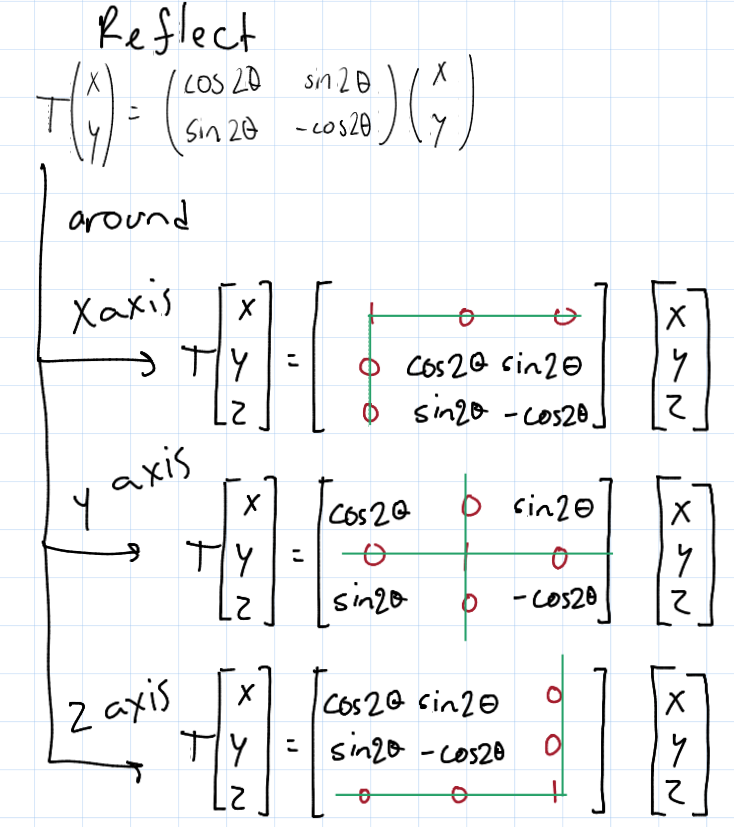 Reflect
T(x y) = (cos2θ sin2θ sin2θ -cos2θ)(x y)
around
x axis
T[x y z] = [1 0 0 0 cos2θ sin2θ 0 sin2θ -cos2θ] [x y z]
y axis
T[x y z] = [cos2θ 0 sin2θ 0 1 0 sin2θ 0 -cos2θ] [x y z]
z axis
T[x y z] = [cos2θ sin2θ 0 sin2θ -cos2θ 0 0 0 1] [x y z]